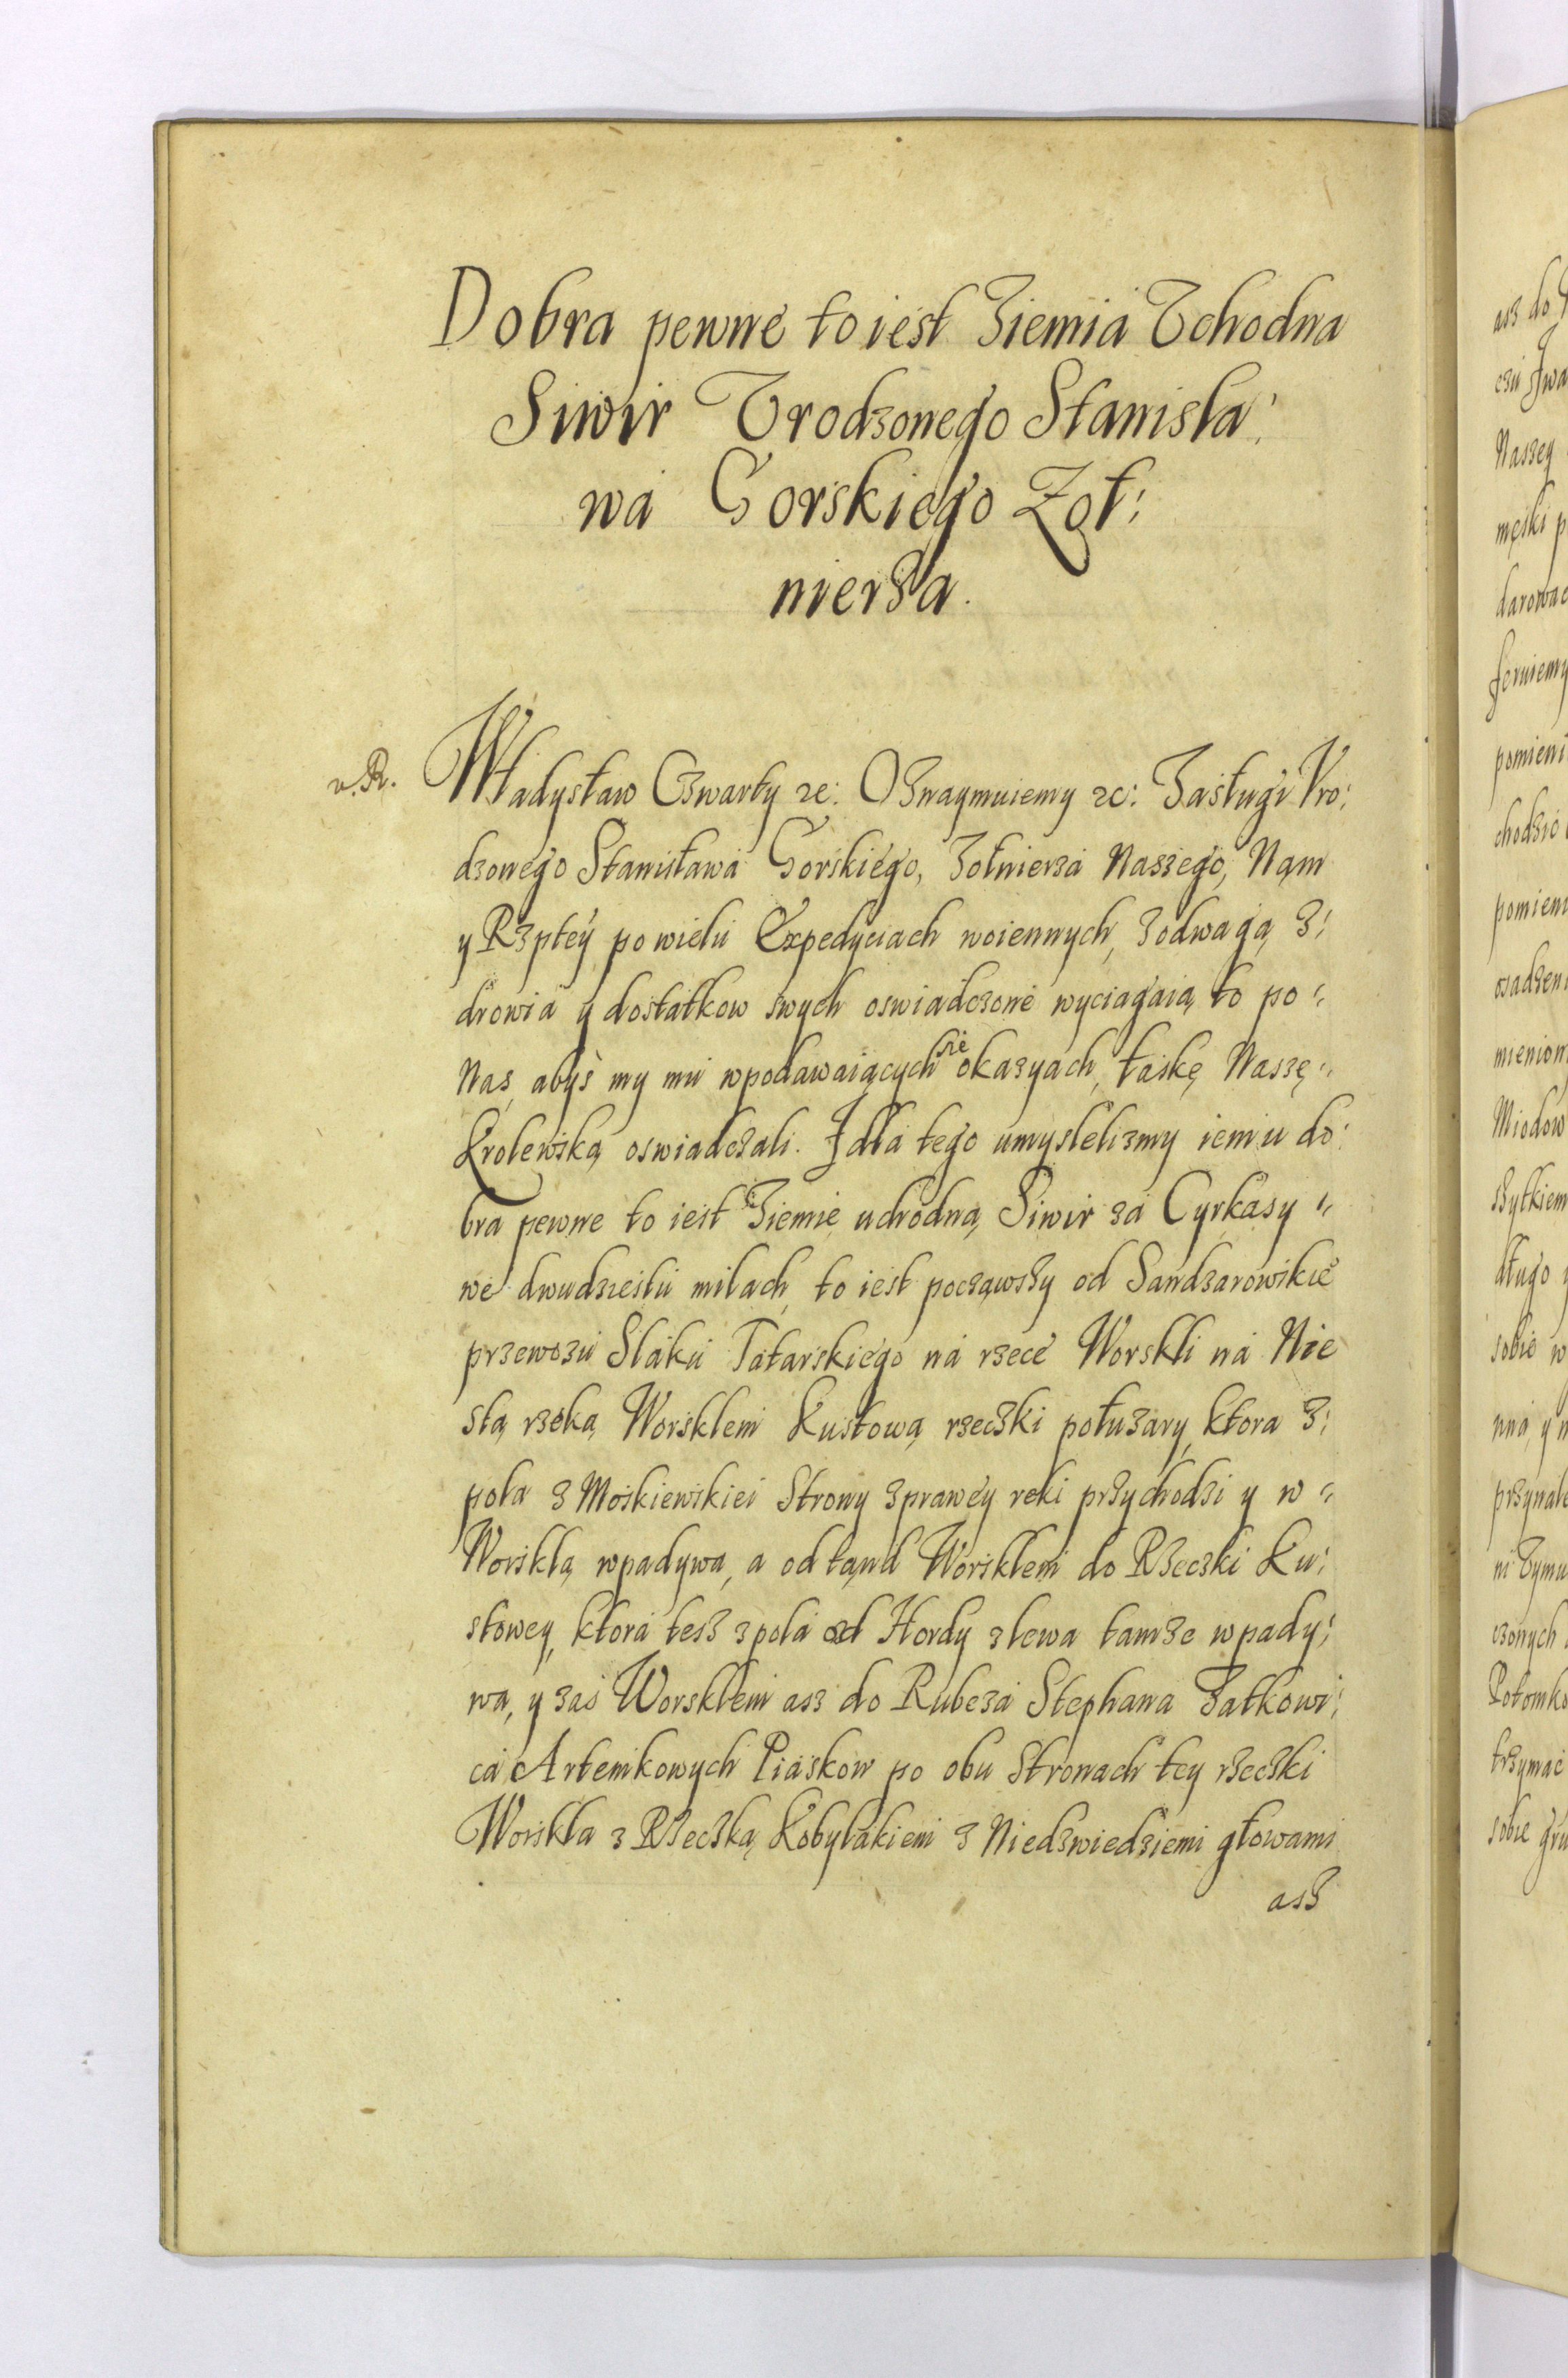 Dobra pewne to iest Ziemia Vchodna
Siwir Vrodzonego Stanisła:
wa Gorskiego Zoł:
nierza.
v. R. Władysław Czwarty zc: Oznaymuiemy zc: Zasługi Vro:
dzonego Stanisława Gorskiego, Zołnierza Naszego, Nąm
y Rzptey po wielu Expedyciach woiennych, z odwagą z:
drowia y dostatkow swych oswiadczone wyciągaią to po =
Nas, abyś my mu wpodawaiących się okazyach, łaskę Naszę =
Krolewską oswiadczali. I dla tego umyslelizmy iemu do:
bra pewne to iest Ziemię uchodną Siwir za Cyrkasy =
we dwudziestu milach, to iest począwszy od Sandzarowskie
przewozu Slaku Tatarskiego na rzece Worskli na Nie
słą rzeką Worsklem Kustową rzeczki połuzary, ktora z:
pola z Moskiewskiei Strony z prawey reki przychodzi y w =
Worsklą wpadywa, a od tąnd Worsklem do Rzeczki Ku:
stowey, ktora tesz z pola od Hordy z lewa tamze wpady:
wa, y zas Worsklem asz do Rubeza Stephana Zatkowi:
ca Artemkowych Piaskow po obu Stronach tey rzeczki
Worskla z Rzeczką Kobylakiem z Niedzwiedziemi głowami
asz
asz do
Naszey
męski p
pomieni
chodzić
pomieni
mieniom
Miodow
długo
sobie w
przynale
czonych
Potomko
trzymać
sobie gru